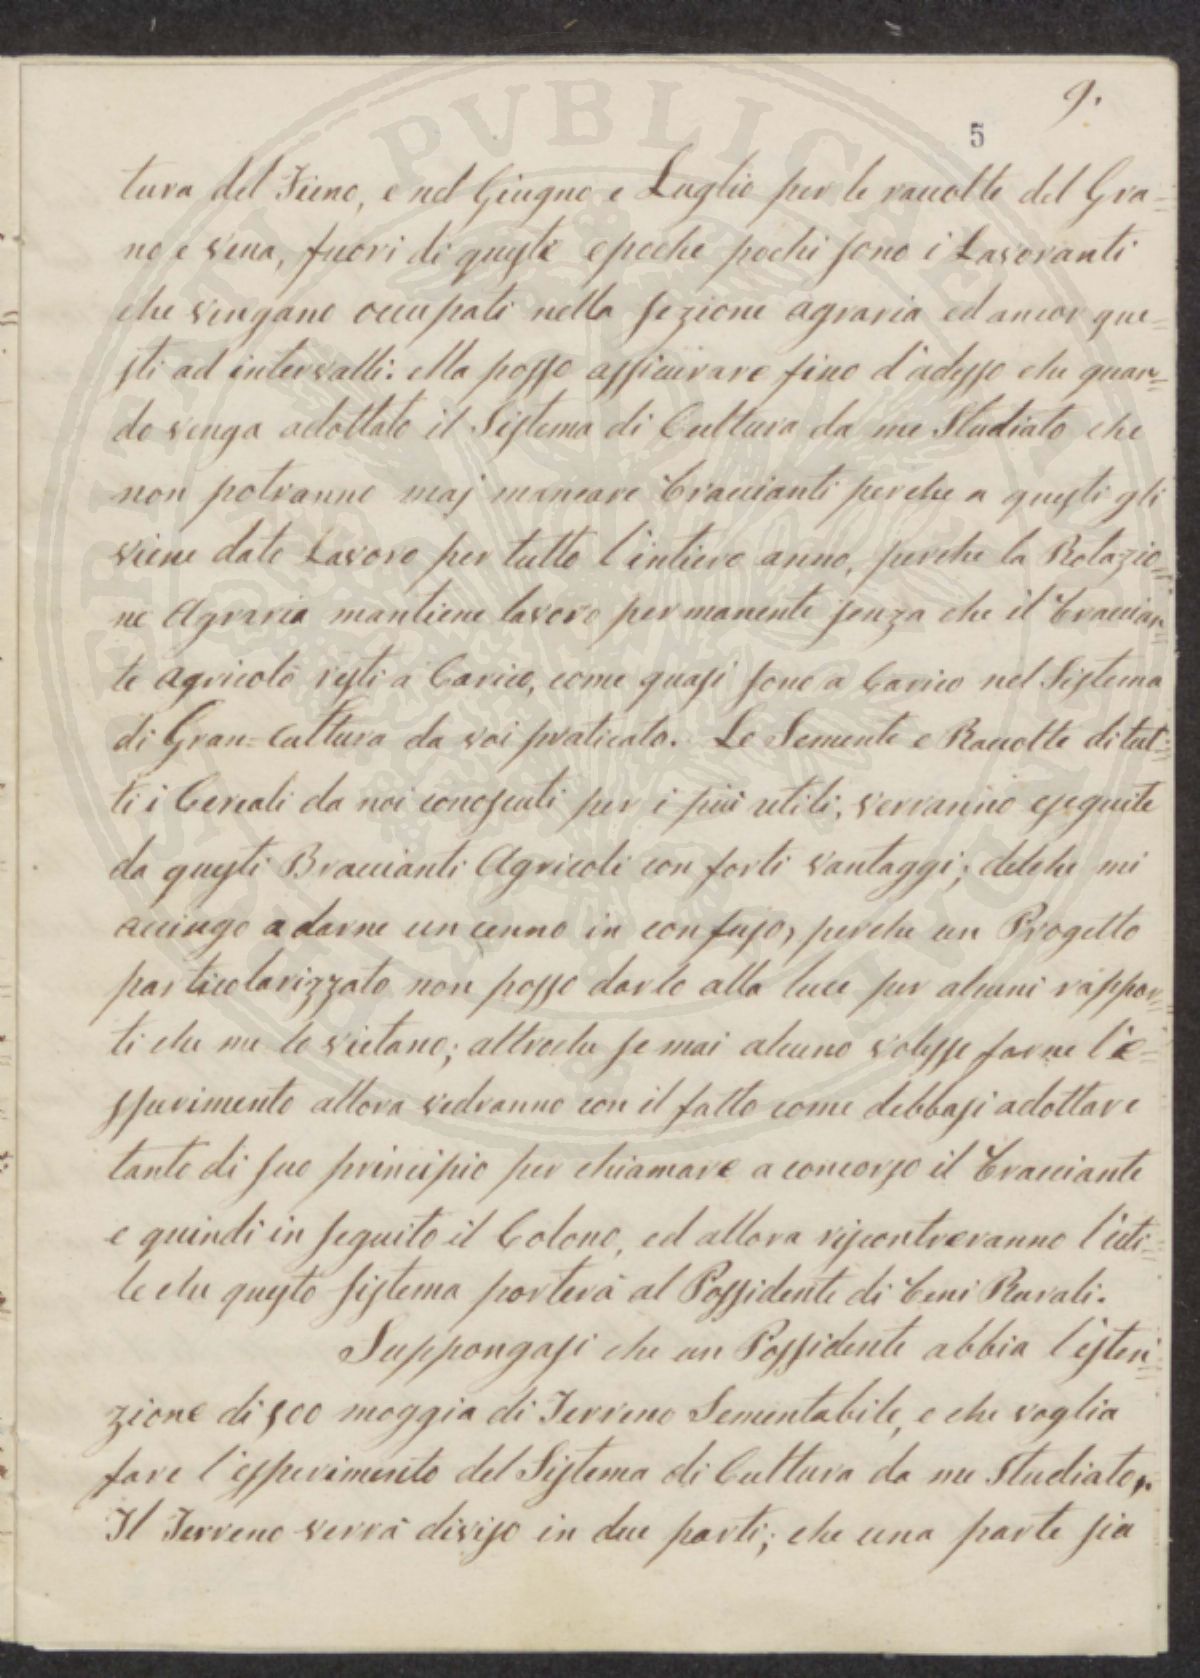 9.
5
tura del Fieno, e nel Giugno e Luglio per le raccolte del Gra=
no e Vena, fuori di queste epoche pochi sono i Lavoranti
che vengano occupati nella sezione agraria ed ancor que=
sti ad intervalli: Ma posso assicurare fino d'adesso che quan=
do venga adottato il Sistema di Cultura da me Studiato che
non potranno maj mancare Braccianti perche a questi gli
viene dato Lavoro per tutto l'intiero anno, perche la Rotazio=
ne Agraria mantiene lavoro permanente senza che il Braccian=
te agricolo resti a Carico, come quasi sono a Carico nel Sistema
di Gran=Cultura da voi praticato. Le Semente e Raccolte di tut=
ti i Cereali da noi conosciuti per i più utili, verranno eseguite
da questi Braccianti Agricoli con forti vantaggi; delche mi
accingo a darne un cenno in confuso, perche un Progetto
particolarizzato non posso darlo alla luce per alcuni rappor=
ti che me lo vietano; altroche se mai alcuno volesse farne l'e=
sperimento allora vedranno con il fatto come debbasi adottare
tanto di suo principio per chiamare a concorso il Bracciante
e quindi in seguito il Colono, ed allora riscontreranno l'uti=
le che questo sistema porterà al Possidente di Beni Rurali.
Suppongasi che un Possidente abbia l'esten=
zione di 500 moggia di Terreno Sementabile, e che voglia
fare l'esperimento del Sistema di Cultura da me Studiato,.
Il Terreno verrà diviso in due parti; che una parte sia